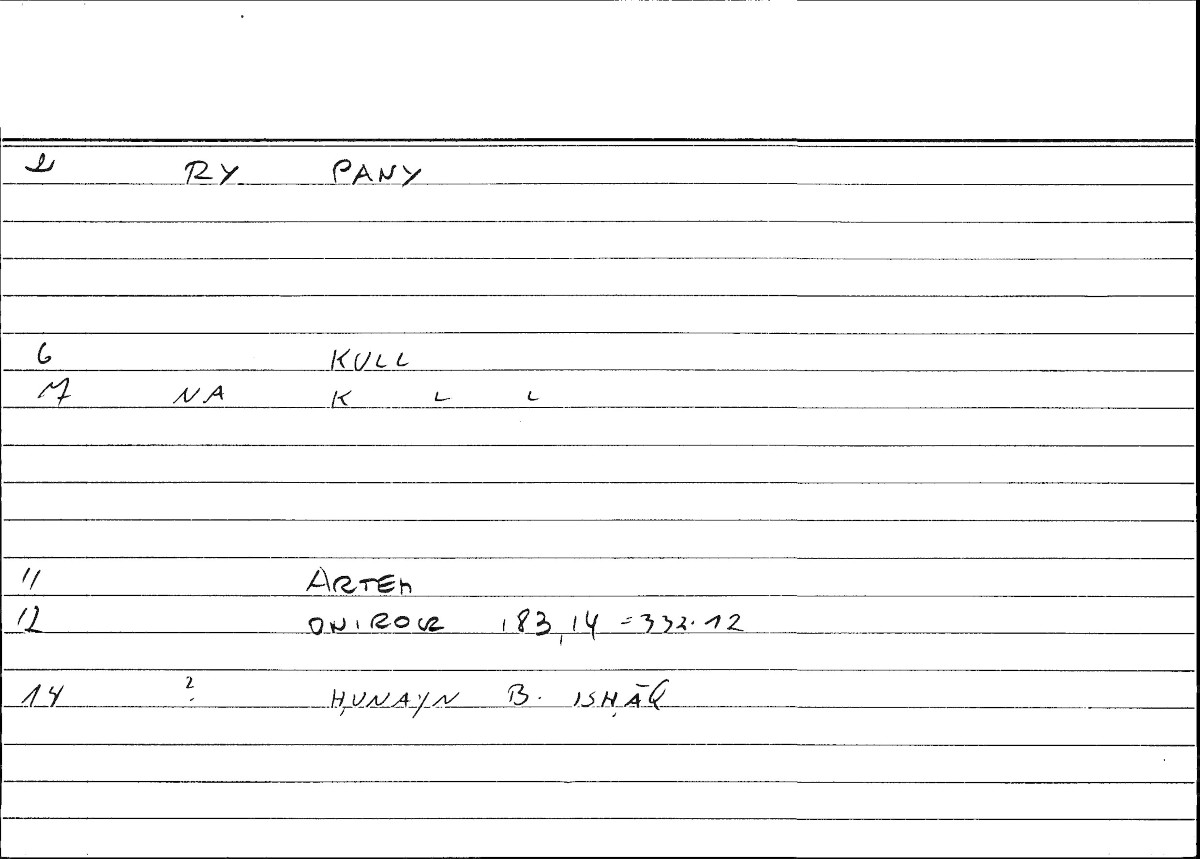 RY PANY
6 KULL
NA K L L
11 ARTEM
12 ONIROCR 183,14 = 332.12
14 ? ḤUNAYN B. ISḤĀQ